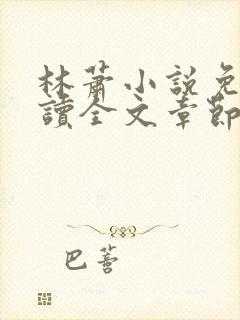 林蕭小說免
讀全文章節
巴薈